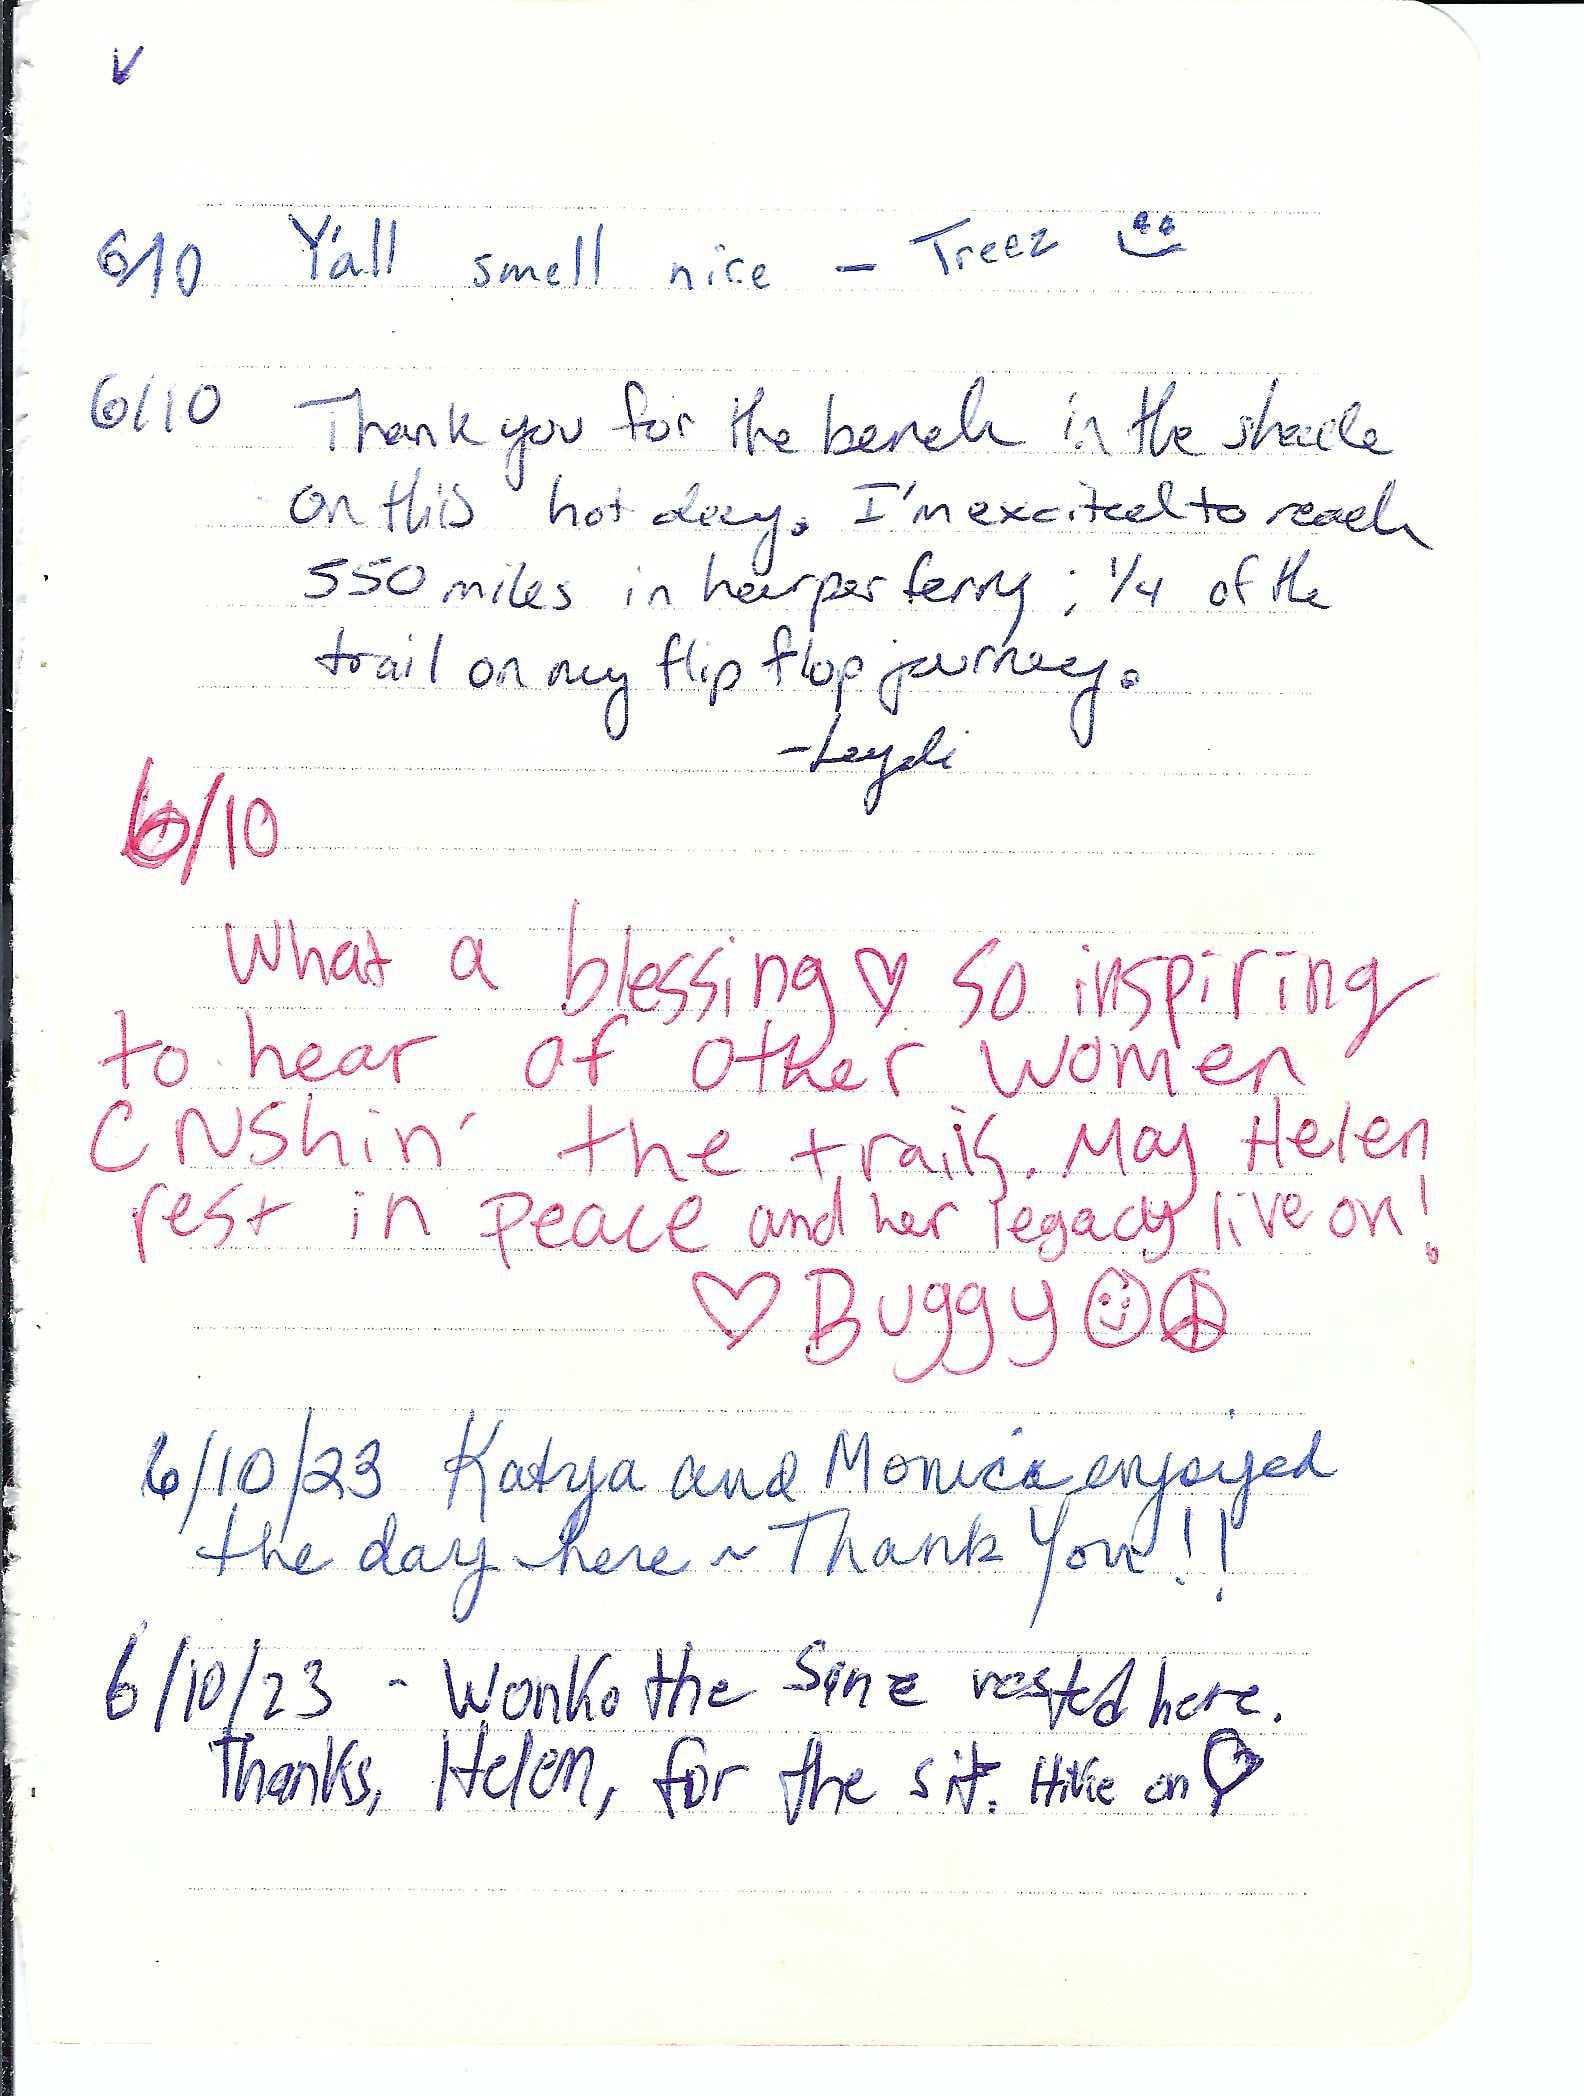 6/10 Y'all smell nice - Treez
6/10 Thank you for the bench in the shade
on this hot day. I'm excited to reach
550 miles in harper ferry; 1/4 of the
trail on my flip flop journey.
- Leydi
6/10
What a blessing ♡ So inspiring
to hear of other women
crushin' the trails. May Helen
rest in peace and her legacy live on!
♡ Buggy ☺ ☮
6/10/23 Katya and Monica enjoyed
the day here ~ Thank You!!
6/10/23 - Wonko the Sane rested here.
Thanks, Helen, for the sit. Hike on ♡